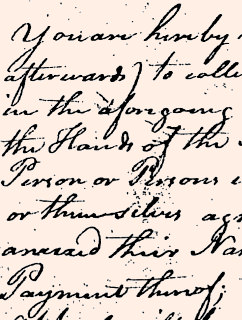 You are hereby
afterwards) to colle
in the aforegoing
the Hands of the
Person or Persons
or themselves ag
annexed their Nam
Payment thereof;